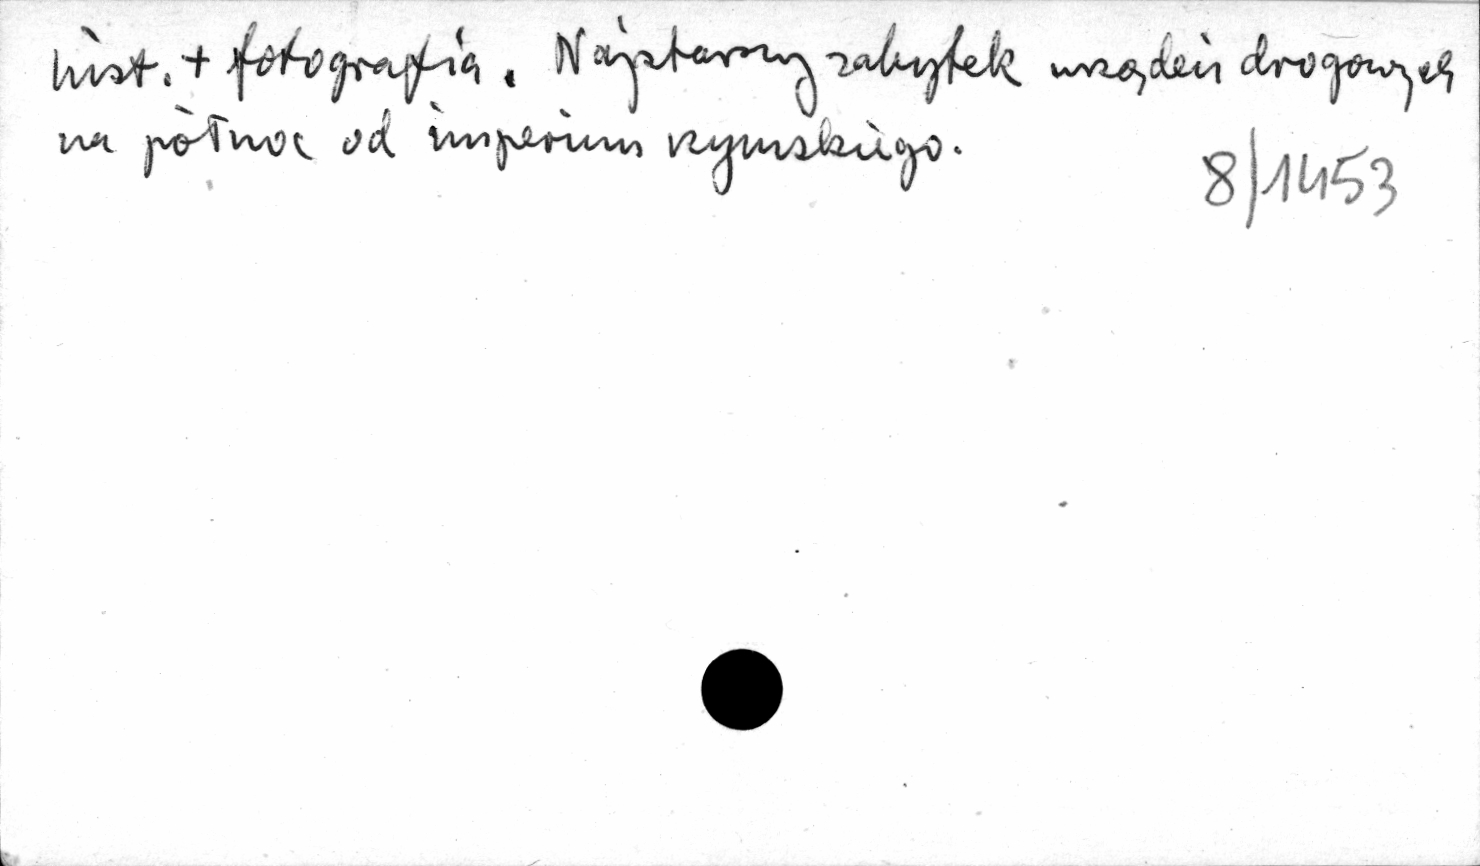 hist. + fotografia. Najstarszy zabytek urządzeń drogowych
na północ od imperium rzymskiego.
8/1453